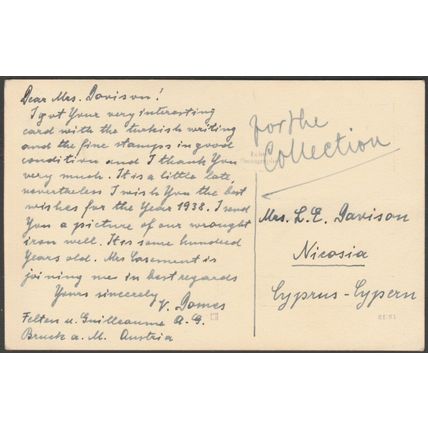 Dear Mrs. Davison!
I got Your very interesting
card with the turkish writing
and the fine stamps in good
condition and I thank You
very much. It is a little late,
nevertheless I wish You the best
wishes for the Year 1938. I send
You a picture of our wrought
iron well. It is some hundred
Years old. Mrs Casement is
joining me in best regards
Yours sincerely
Felten u. Guilleaume A. G.
Bruck a. M. Austria
for the
Collection
Mrs. L. E. Davison
Nicosia
Cyprus - Cypern